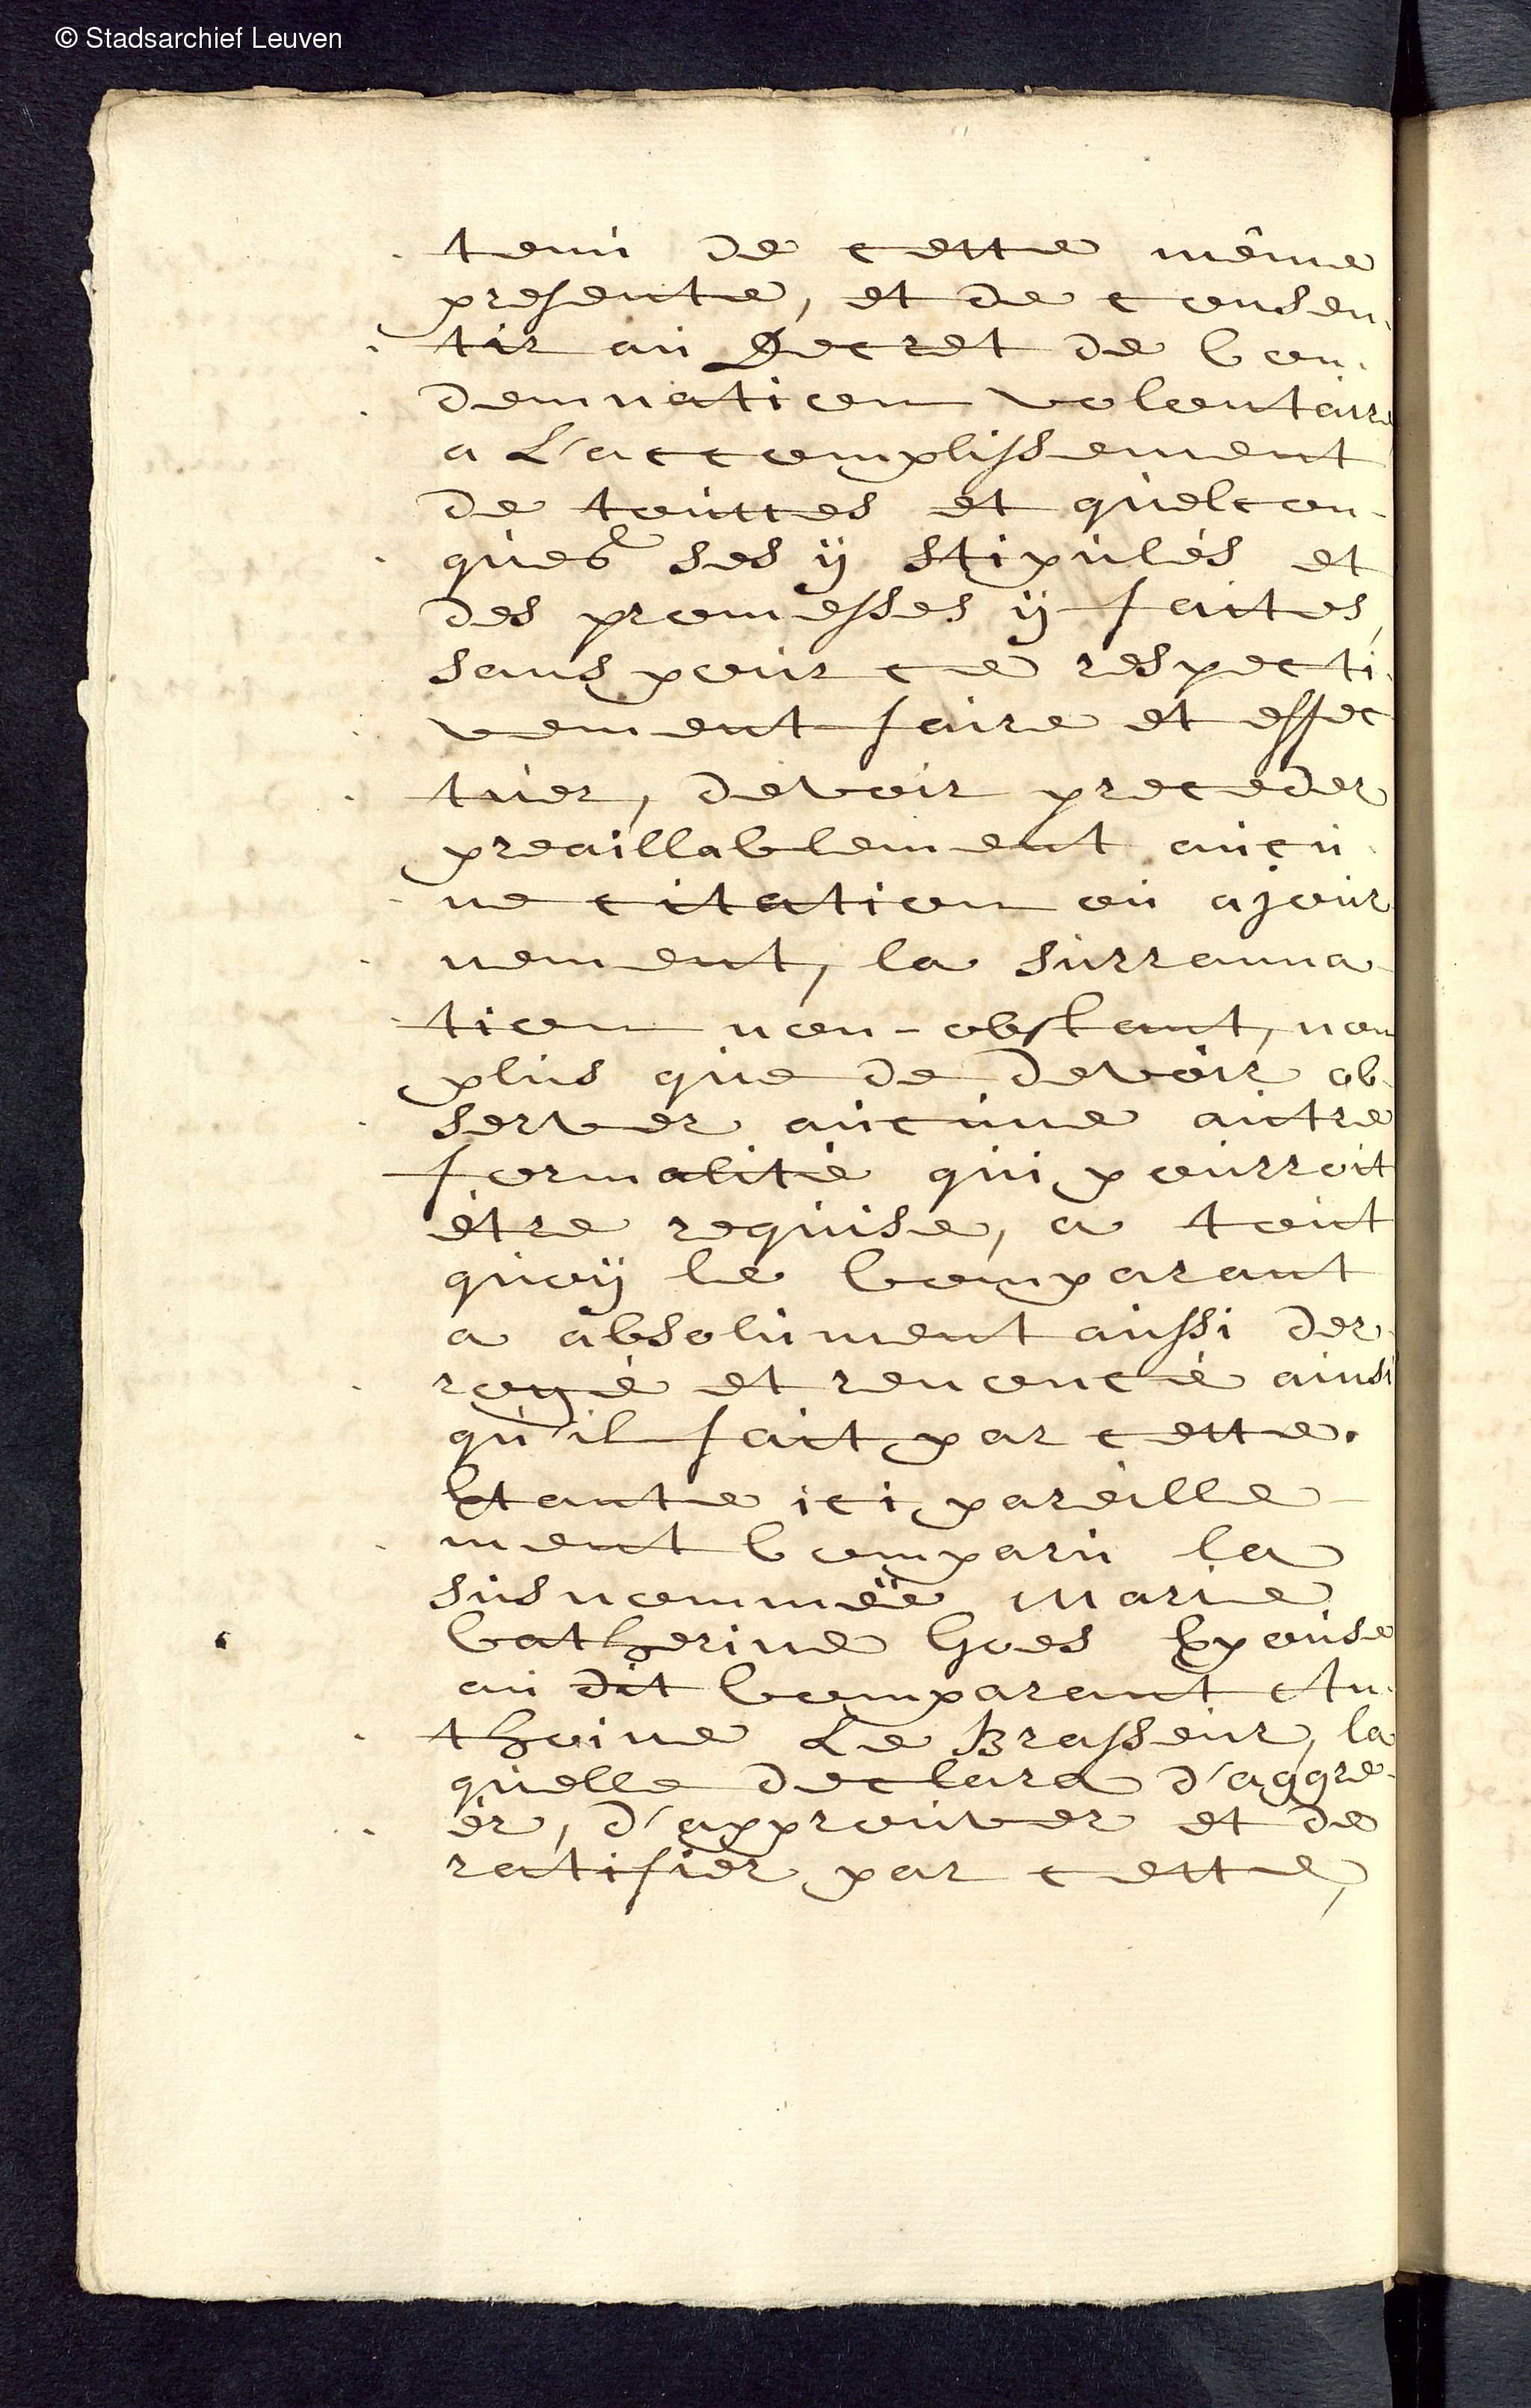 © Stadsarchief Leuven
tenu de cette même
presente, et de consen-
tir au Decret de Con-
demnation volontaire
a L'accomplissement
de touttes et quelcon-
ques ses ÿ stipulés et
des promesses ÿ faites,
sans pour ce respecti-
vement faire et effec
tuer, devoir preceder
preaillablement aucu-
ne citation ou ajour
nement, la surranna-
tion non-obstant, non
plus que de devoir ob-
server aucune autre
formalité qui pourroit
être requise, a tout
quoÿ le Comparant
a absolument aussi der-
rogé et renoncé ainsi
qu'il fait par cette.
Etante ici pareille-
ment Comparu la
susnommée Marie
Catherine Goes Epouse
au dit Comparant An-
thoine Le Brasseur, la
quelle declara d'aggre-
ér, d'approuver et de
ratifier par cette,